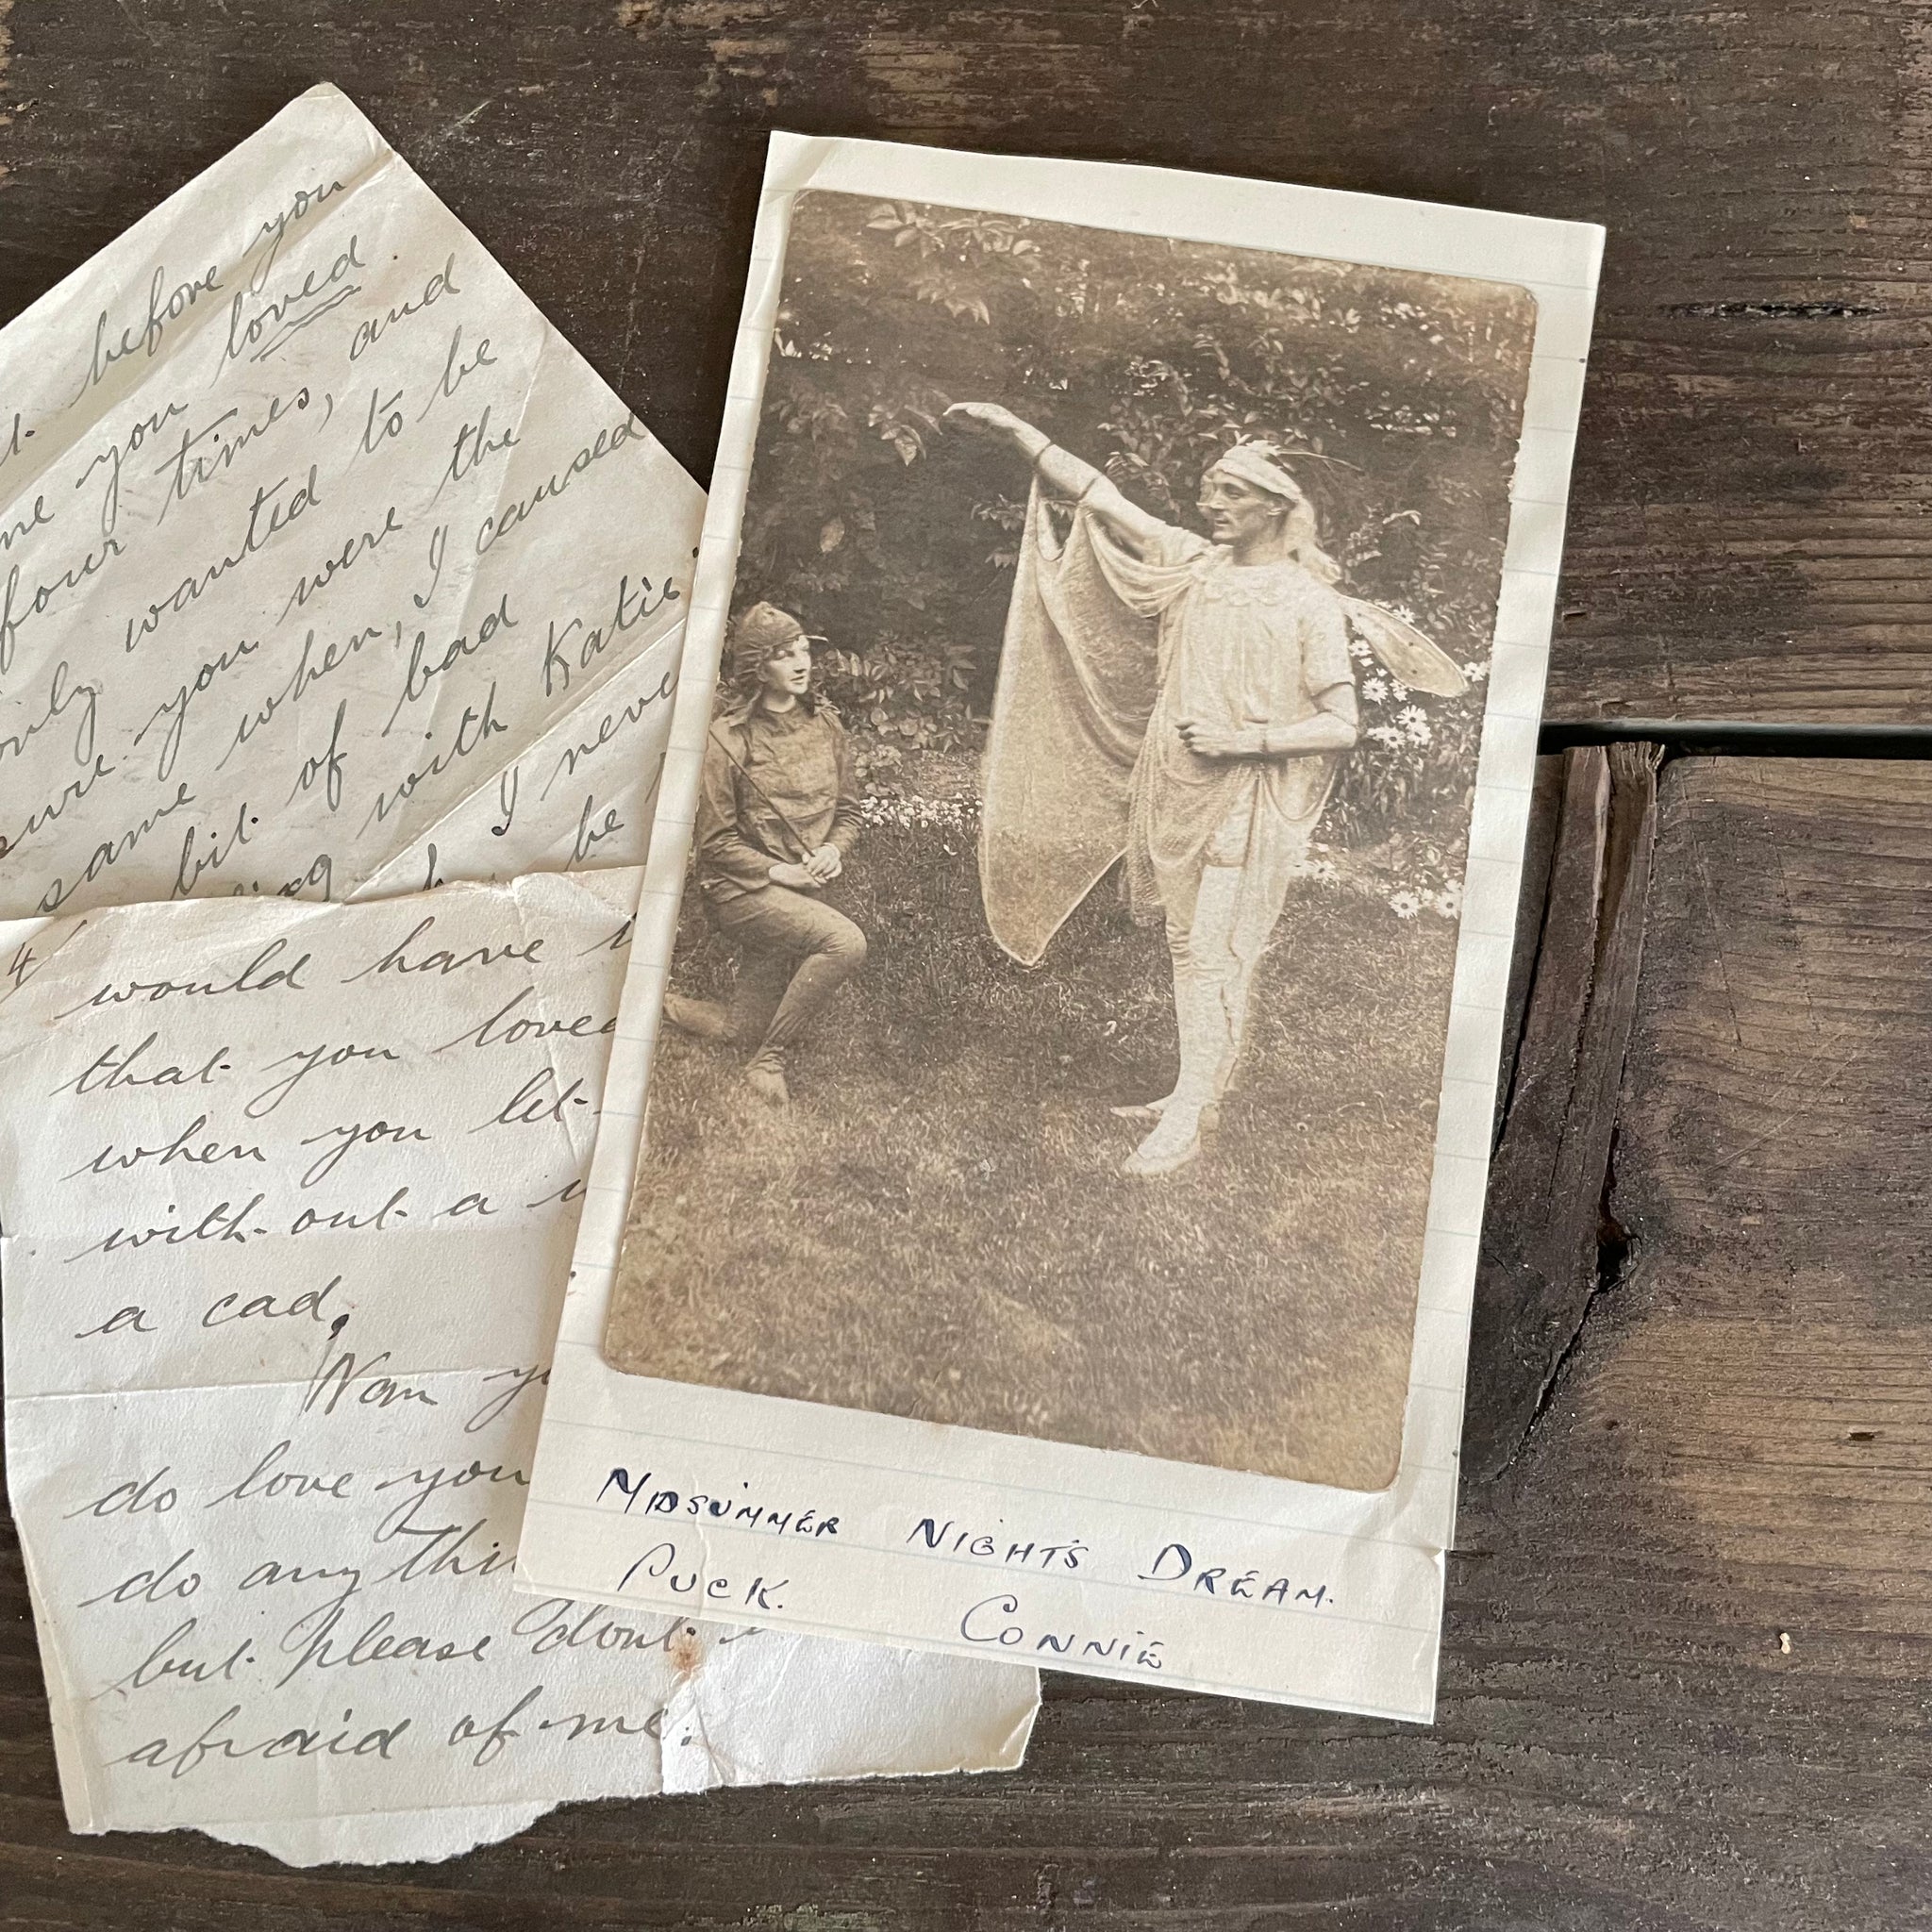 before you
me you loved.
four times, and
only wanted to be
sure you were the
same when, I caused
bit of bad
with Katie.
I never
be
4/
would have
that you loved
when you let
with-out a
a cad.
Nan
do love you
do any
but please don't
afraid of me.
MIDSUMMER NIGHTS DREAM.
PUCK. CONNIE